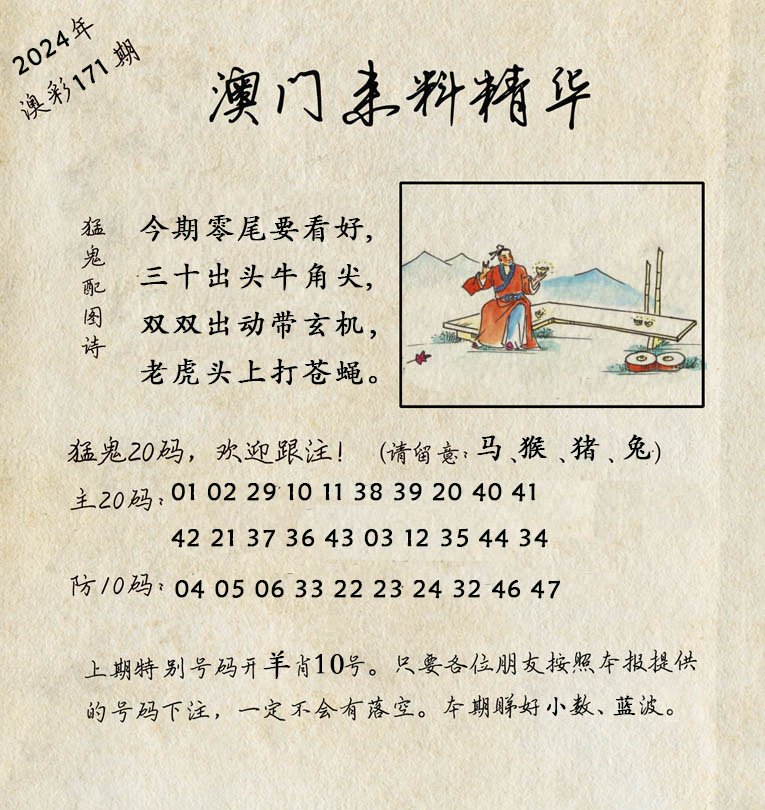 2024年
澳彩171期
澳门来料精华
猛鬼配图诗
今期零尾要看好，
三十出头牛角尖，
双双出动带玄机，
老虎头上打苍蝇。
猛鬼20码，欢迎跟注！（请留意：马、猴、猪、兔）
主20码：01 02 29 10 11 38 39 20 40 41
42 21 37 36 43 03 12 35 44 34
防10码：04 05 06 33 22 23 24 32 46 47
上期特别号码开羊肖10号。只要各位朋友按照本报提供
的号码下注，一定不会有落空。本期睇好小数、蓝波。